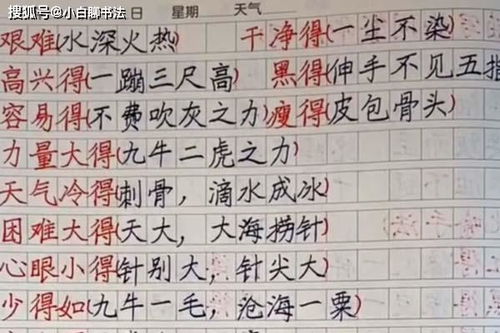 搜狐号@小白聊书法
日 星期 天气
艰难(水深火热) 干净得(一尘不染)
高兴得(一蹦三尺高) 黑得(伸手不见五指
容易得(不费吹灰之力)瘦得(皮包骨头)
力量大得(九牛二虎之力)
天气冷得(刺骨，滴水成冰)
困难大得(天大，大海捞针)
心眼小得(针别大，针尖大)
少得如(九牛一毛，沧海一粟)